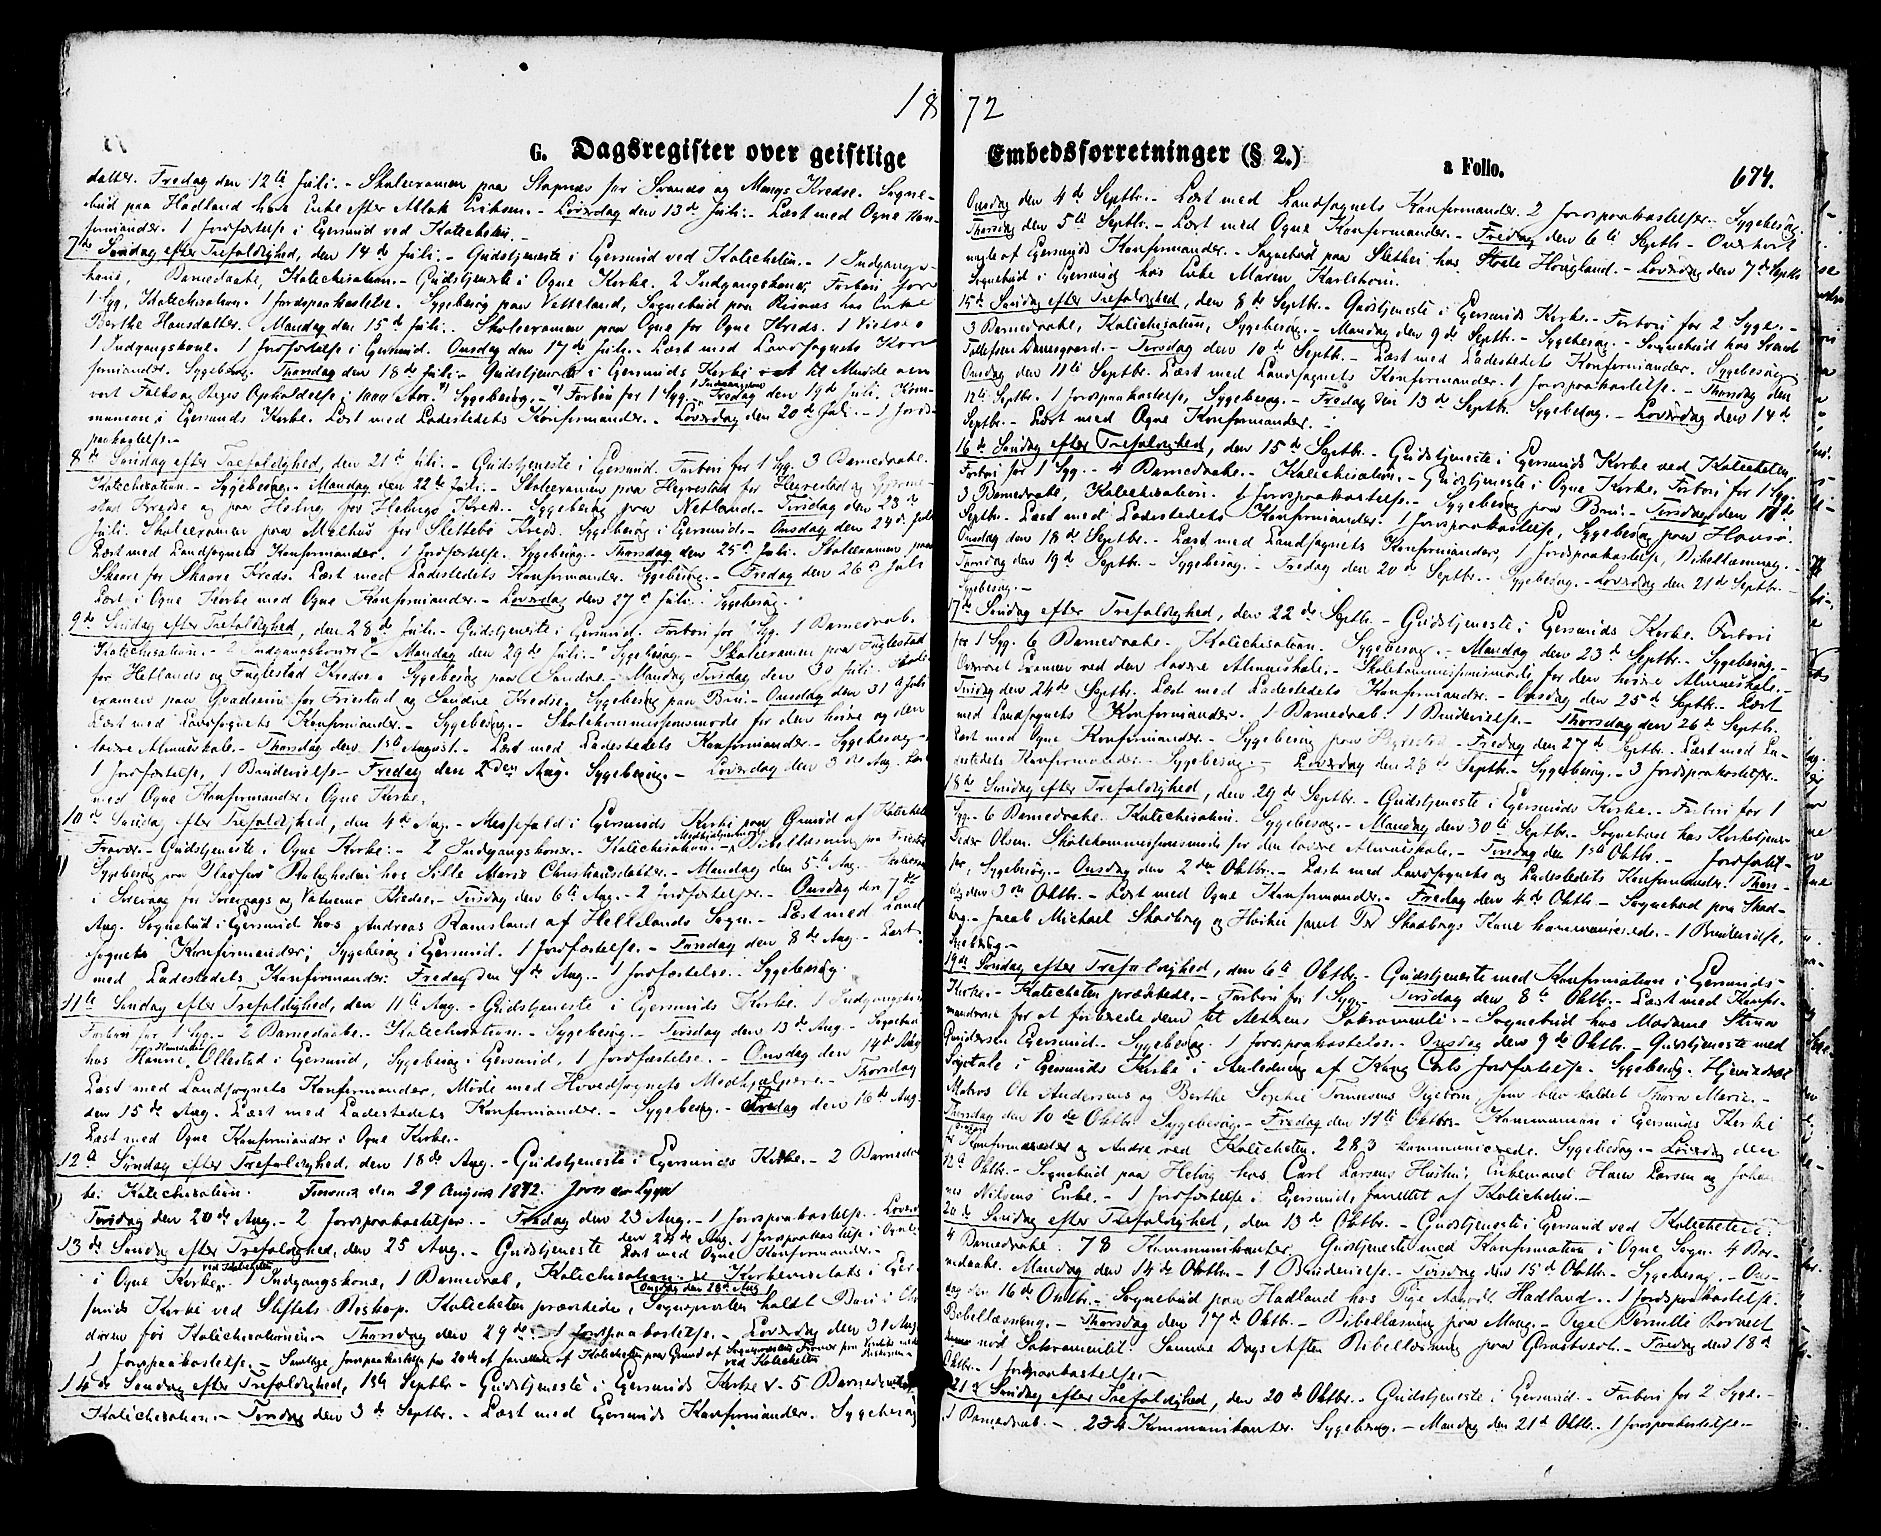 1872
G. Dagsregister over geistlige Embedsforretninger (§ 2.)
a Folio.
674.
datter. Fredag den 12te Juli. - Skoleexamen paa Stapnes for Svands og Mongs Kredse. Sogne-
bud paa Hadland hos Enke efter Aslak Eriksen. - Løverdag den 13de Juli. - Læst med Ogne Kon-
firmander. 1 Jordfæstelse i Egersund ved Katecheten. -
7de Søndag efter Trefoldighed, den 14de Juli. - Gudstjeneste i Egersund ved Katecheten. - 1 Indgangs-
kone, Barnedaabe, Katechisation. - Gudstjeneste i Ogne Kirke. 2 Indgangskoner, Forbøn for
1 Syg, Katechisation. 1 Jordpaakastelse. Sygebesøg paa Vetteland, Sognebud paa Risnes hos Enke
Berthe Hansdatter. Mandag den 15de Juli. Skoleexamen paa Ogne for Ogne Kreds. 1 Vielse
1 Indgangskone. 1 Jordfæstelse i Egersund. Onsdag den 17de Juli. - Læst med Landsognets Kon-
firmander. Sygebesøg. Thorsdag den 18de Juli. - Gudstjeneste i Egersunds Kirke til Minde om
vort Folks og Riges Opholdelse i 1000 Aar. Sygebesøg. - Forbøn for 1 Syg. 1 Indgangskone Fredag den 19de Juli. Kom-
munion i Egersunds Kirke. Læst med Ladestedets Konfirmander. - Løverdag den 20de Juli. - 1 Jords-
paakastelse. -
8de Søndag efter Trefoldighed, den 21de Juli. - Gudstjeneste i Egersund. Forbøn for 1 Syg. 3 Barnedaabe.
Katechisation. - Sygebesøg. - Mandag den 22de Juli. - Skoleexamen paa Hegrestad for Hegrestad og
stad Kredse og paa Helvig for Helvigs Kreds. Sygebesøg paa Netland. - Tirsdag den 23de
Juli. Skoleexamen paa Melhus for Slettebø Kreds. Sygebesøg i Egersund. - Onsdag den 24de Juli
Læst med Landsognets Konfirmander. 1 Jordfæstelse. Sygebesøg. Thorsdag den 25de Juli. Skoleexamen paa
Skaare for Skaare Kreds. Læst med Ladestedets Konfirmander. Sygebesøg. - Fredag den 26de Juli
Læst i Ogne Kirke med Ogne Konfirmander. - Løverdag den 27de Juli. Sygebesøg.
9de Søndag efter Trefoldighed, den 28de Juli. - Gudstjeneste i Egersund. Forbøn for 1 Syg. 1 Barnedaab.
Katechisation. - 2 Indgangskoner. - Mandag den 29de Juli. - Sygebesøg. - Skoleexamen paa Fuglestad
for Hetlands og Fuglestad Kredse. Sygebesøg paa Søndre. - Tirsdag den 30 Juli. Skole-
examen paa Qvadsem for Friestad og Søndre Kredse. Sygebesøg paa Bru. - Onsdag den 31te Juli
Læst med Landsognets Konfirmander. - Sygebesøg. - Skolekommissionsmøde for den høire og den
lavere Almueskole. - Thorsdag den 1ste August. - Læst med Ladestedets Konfirmander. - Sygebesøg. -
1 Jordfæstelse, 1 Brudevielse. - Fredag den 2den Aug. Sygebesøg. - Løverdag den 3die Aug. Læst
med Ogne Konfirmander i Ogne Kirke.
10de Søndag efter Trefoldighed, den 4de Aug. - Messefald i Egersunds Kirke paa Grund af Katechetens
Fravær. - Gudstjeneste i Ogne Kirke. - 2 Indgangskoner. - Katechisation. - Bibellæsning paa Friestad
Sygebesøg paa hos Sille Marie Christiansdatter. - Mandag den 5te Aug. Skoleexamen
i Sirevaag for Sirevaags og Vatnemo Kredse. - Tirsdag den 6te Aug. - 2 Jordfæstelser. - Onsdag den 7de
Aug. Sognebud i Egersund hos Andreas Ramsland af Hellelands Sogn. - Læst med Land-
sognets Konfirmander; Sygebesøg i Egersund. 1 Jordfæstelse. - Torsdag den 8de Aug. - Læst
med Ladestedets Konfirmander. Fredag den 9de Aug. - 1 Jordfæstelse. Sygebesøg.
11te Søndag efter Trefoldighed, den 11te Aug. - Gudstjeneste i Egersunds Kirke. 1 Indgangskone
Forbøn for 1 Syg. - 2 Barnedaabe. - Katechisation. - Sygebesøg. - Tirsdag den 13de Aug. - Sognebud
hos Hanne Ollestad i Egersund, Sygebesøg i Egersund, 1 Jordfæstelse. - Onsdag den 14de Aug.
Læst med Landsognets Konfirmander, Møde med Hovedsognets Medhjælpere. - Thorsdag
den 15de Aug. Læst med Ladestedets Konfirmander. - Sygebesøg. - Fredag den 16de Aug.
Læst med Ogne Konfirmander i Ogne Kirke. -
12te Søndag efter Trefoldighed, den 18de Aug. - Gudstjeneste i Egersunds Kirke. - 2 Barnedaa-
be. Katechisation. den 29 August 1872. J von der Lippe
Tirsdag den 20de Aug. - 2 Jordpaakastelser. - Fredag den 23 Aug. - 1 Jordpaakastelse. Løverdag
den 24de Aug. 1 Jordpaakastelse i Ogne
Læst med Ogne Konfirmander. -
13de Søndag efter Trefoldighed, den 25 Aug. - Gudstjeneste
i Ogne Kirke ved Katecheten, 1 Indgangskone, 1 Barnedaab, Katechisation. Onsdag den 28de Aug. Kirkevisitats i Eger-
sunds Kirke ved Stiftets Biskop. Katecheten prædikede, Sognepræsten holdt Bøn i Cho
døren før Katechisationen. - Thorsdag den 29de. - 1 Jordpaakastelse. - Løverdag den 31 Aug.
1 Jordpaakastelse. - Samtlige Jordpaakastelser fra 20de af forrettede af Katecheten paa Grund af Sognepræstens Fravær
14de Søndag efter Trefoldighed, 1ste Septbr. - Gudstjeneste i Egersunds Kirke ved Katecheten. - 5 Barnedaabe
Katechisation. - Tirsdag den 3de Septbr. - Læst med Egersunds Konfirmander. Sygebesøg
Onsdag den 4de Septbr. - Læst med Landsognets Konfirmander. 2 Jordpaakastelser. Sygebesøg.
Thorsdag den 5te Septbr. - Læst med Ogne Konfirmander. - Fredag den 6te Septbr. - Overhørt
nogle af Egersunds Konfirmander. - Sognebud paa Slethei hos Hougland. - Løverdag den 7de Septbr
Sognebud i Egersund hos Enke Maren Karlsen.
15de Søndag efter Trefoldighed, den 8de Septbr. - Gudstjeneste i Egersunds Kirke. - Forbøn for 2 Syge. -
3 Barnedaabe, Katechisation, Sygebesøg. - Mandag den 9de Septbr. - Sygebesøg. - Sognebud hos
Tollefsen - Tirsdag den 10de Septbr. - Læst med Ladestedets Konfirmander. Sygebesøg.
Onsdag den 11te Septbr. Læst med Landsognets Konfirmander. 1 Jordpaakastelse. - Thorsdag den
12te Septbr. 1 Jordpaakastelse, Sygebesøg. - Fredag den 13de Septbr. Sygebesøg. - Løverdag den 14de
Septbr. - Læst med Ogne Konfirmander. -
16de Søndag efter Trefoldighed, den 15de Septbr. - Gudstjeneste i Egersunds Kirke ved Katecheten,
Forbøn for 1 Syg. - 4 Barnedaabe. - Katechisation. - Gudstjeneste i Ogne Kirke. Forbøn for 1 Syg.
3 Barnedaabe, Katechisation. 1 Jordpaakastelse. - Sygebesøg paa Bru. - Tirsdag den 17de
Septbr. Læst med Ladestedets Konfirmander. 1 Jordpaakastelse, Sygebesøg paa Havsø.
Onsdag den 18de Septbr. - Læst med Landsognets Konfirmander, 1 Jordpaakastelse, Bibellæsning. -
Torsdag den 19de Septbr. - Sygebesøg. - Fredag den 20de Septbr. - Sygebesøg. - Løverdag den 21de Septbr. -
Sygebesøg. -
17de Søndag efter Trefoldighed, den 22de Septbr. - Gudstjeneste i Egersunds Kirke. Forbøn
for 1 Syg. 6 Barnedaabe. - Katechisation. Sygebesøg. - Mandag den 23de Septbr. - Sygebesøg. -
Overværet Examen ved den lavere Almueskole. - Skolekommissionsmøde for den høire Almueskole. -
Tirsdag den 24de Septbr. Læst med Ladestedets Konfirmander. - Onsdag den 25de Septbr. - Læst
med Landsognets Konfirmander. 1 Barnedaab. 1 Brudevielse. - Thorsdag den 26de Septbr.
Læst med Ogne Konfirmander. - Sygebesøg paa - Fredag den 27de Septbr. Læst med La-
destedets Konfirmander. - Sygebesøg. - Løverdag den 28de Septbr. - Sygebesøg. - 3 Jordpaakastelser.
18de Søndag efter Trefoldighed, den 29de Septbr. - Gudstjeneste i Egersunds Kirke. - Forbøn for 1
Syg. - 6 Barnedaabe. - Katechisation. Sygebesøg. - Mandag den 30te Septbr. - Sognebud hos Kirketjener
Peder Olsen. Skolekommissionsmøde for den lavere Almueskole. - Tirsdag den 1ste Oktbr. - Jordfæstel-
ser, Sygebesøg. - Onsdag den 2den Oktbr. - Læst med Landsognets og Ladestedets Konfirmander. Thors-
dag den 3die Oktbr. - Læst med Ogne Konfirmander. - Fredag den 4de Oktbr. - Sognebud paa Skad-
berg. - Jacob Michael Skadberg og Hustru samt Per Skadbergs Kone kommunicerede. - 1 Brudevielse,
Sygebesøg. -
19de Søndag efter Trefoldighed, den 6te Oktbr. - Gudstjeneste med Konfirmation i Egersunds
Kirke. - Katecheten prædikede. - Forbøn for 1 Syg. - Tirsdag den 8de Oktbr. - Læst med Konfir-
manderne for at forberede dem til Altrens Sakramente. - Sognebud hos Madame Stina
Gundersen Egersund. - Sygebesøg. 1 Jordpaakastelse. - Onsdag den 9de Oktbr. - Gudstjeneste med
Ligtale i Egersunds Kirke i Anledning af Kong Carls Jordfæstelse. Sygebesøg. Hjemmedøbt
Matros Ole Andersens og Berthe Sophie Tønnesens Pigebarn, som blev kaldet Thora Marie. -
Torsdag den 10de Oktbr. Sygebesøg. - Fredag den 11te Oktbr. - Kommunion i Egersunds Kirke
for Konfirmander og Andre ved Katecheten. 283 kommunicerede. Sygebesøg. - Løverdag den
12te Oktbr. - Sognebud paa Helvig hos Carl Larsens Hustru, Enkemand Hans Larsen og Johan-
nes Nilsens Enke. - 1 Jordfæstelse i Egersund, forrettet af Katecheten. -
20de Søndag efter Trefoldighed, den 13de Oktbr. - Gudstjeneste i Egersund ved Katecheten.
4 Barnedaabe. 78 Kommunikanter. Gudstjeneste med Konfirmation i Ogne Sogn. 4 Bar-
nedaabe. Mandag den 14de Oktbr. - 1 Brudevielse. - Tirsdag den 15de Oktbr. - Sygebesøg. - Ons-
dag den 16de Oktbr. - Sognebud paa Hadland hos Pige Hadland. - 1 Jordpaakastelse.
Bibellæsning. - Thorsdag den 17de Oktbr. - Bibellæsning paa Mong. - Pige Pernille
nød Sakramentet. Samme Dags Aften Bibellæsning paa - Fredag den 18de
Oktbr. - 1 Jordpaakastelse. -
21de Søndag efter Trefoldighed, den 20de Oktbr. - Gudstjeneste i Egersund. - Forbøn for 2 Syge. -
1 Barnedaab. - 234 Kommunikanter. Sygebesøg. - Mandag den 21de Oktbr. 1 Jordpaakastelse. -